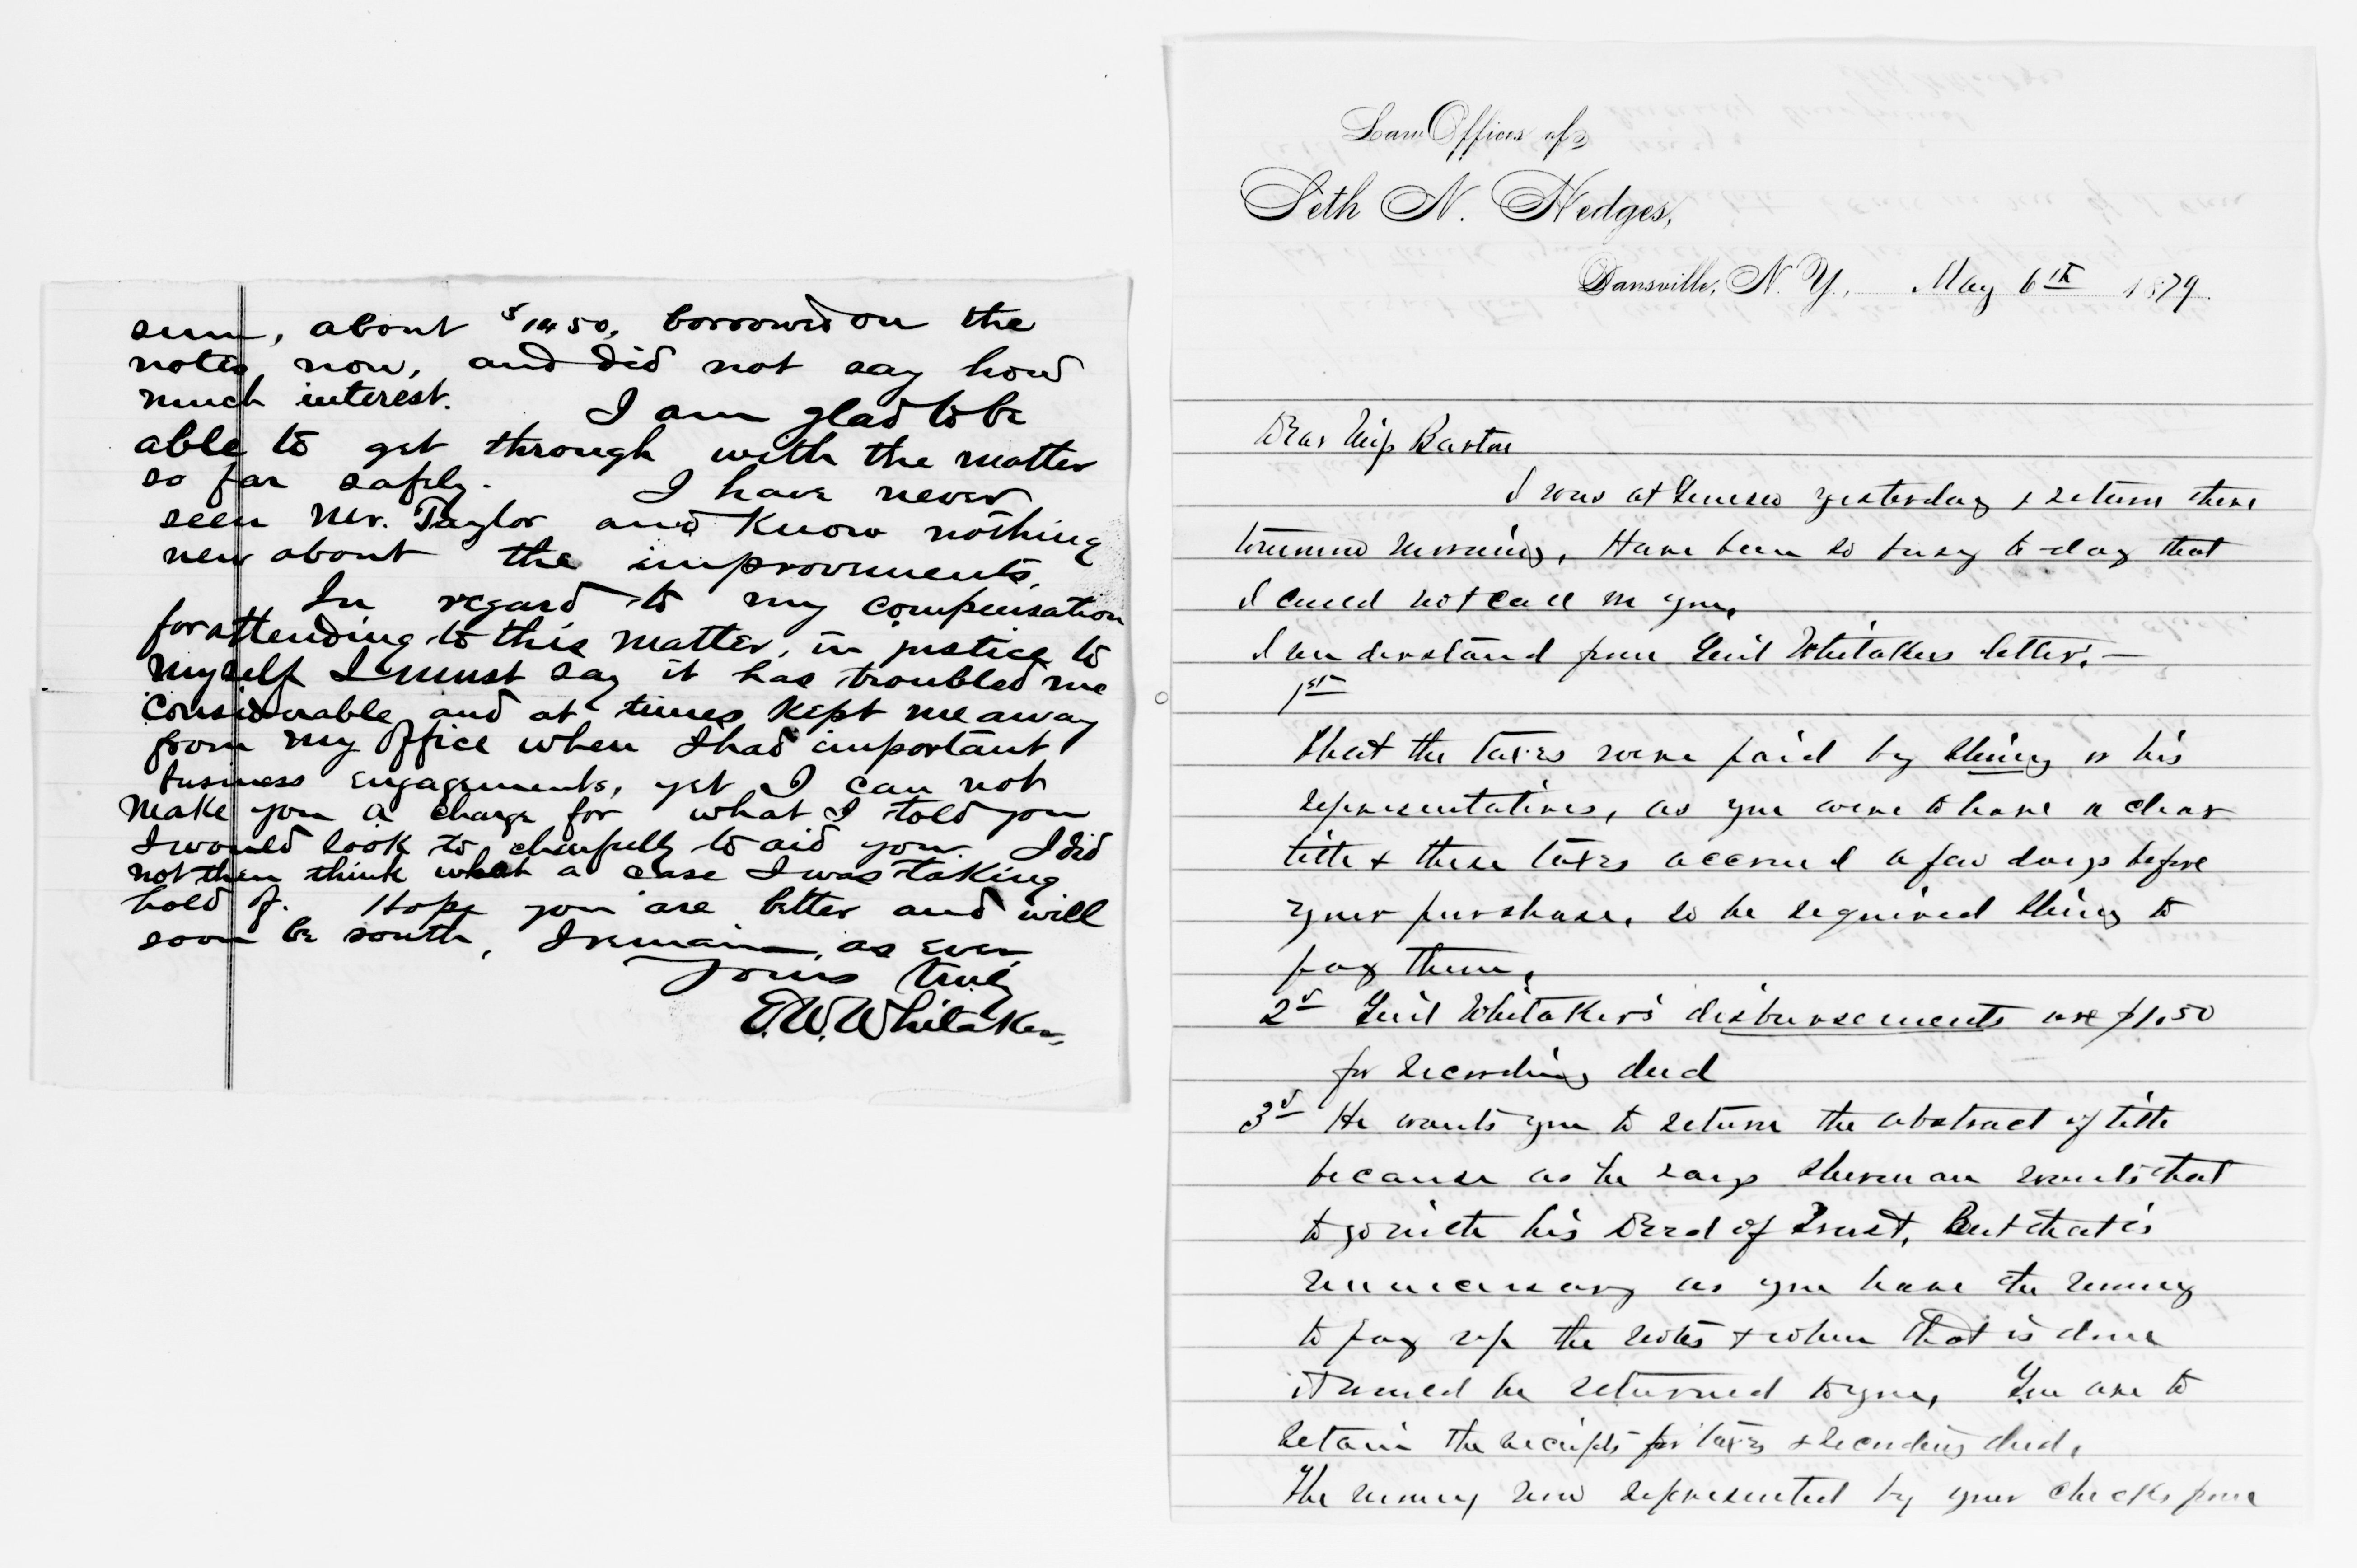 sum, about $1450, borrowed on the
notes, now, and did not say how
much interest. I am glad to be
able to get through with the matter
so far safely. I have never
seen Mr. Taylor and know nothing
new about the improvements.
In regard to my compensation
for attending to this matter, in justice to
myself I must say it has troubled me
considerable and at times kept me away
from my office when I had important
business engagements, yet I can not
make you a charge for what I told you
I would look to cheerfully to aid you. I did
not then think what a case I was taking
hold of. Hope you are better and will
soon be south, I remain, as ever,
Yours truly
E. W. Whitaker,
Law Offices of
Seth N. Hedges,
Dansville, N. Y., May 6th 1879.
Dear Miss Barton
I was at Geneseo yesterday & return there
tomorrow morning, Have been so busy to-day that
I could not call on you,
I understand from Genl Whitakers letter, —
1st
That the taxes were paid by or his
representatives, as you were to have a clear
title & these taxes accrued a few days before
your purchase, so he required to
pay them,
2d Genl Whitaker's disbursements are $1.50
for recording deed
3d He wants you to return the abstract of title
because as he says Sherman wants that
to go with his Deed of Trust, But that is
unnecessary as you have the money
to pay up the notes & when that is done
it would be returned to you, You are to
retain the receipts for taxes & recording deed,
The money now represented by your checks from